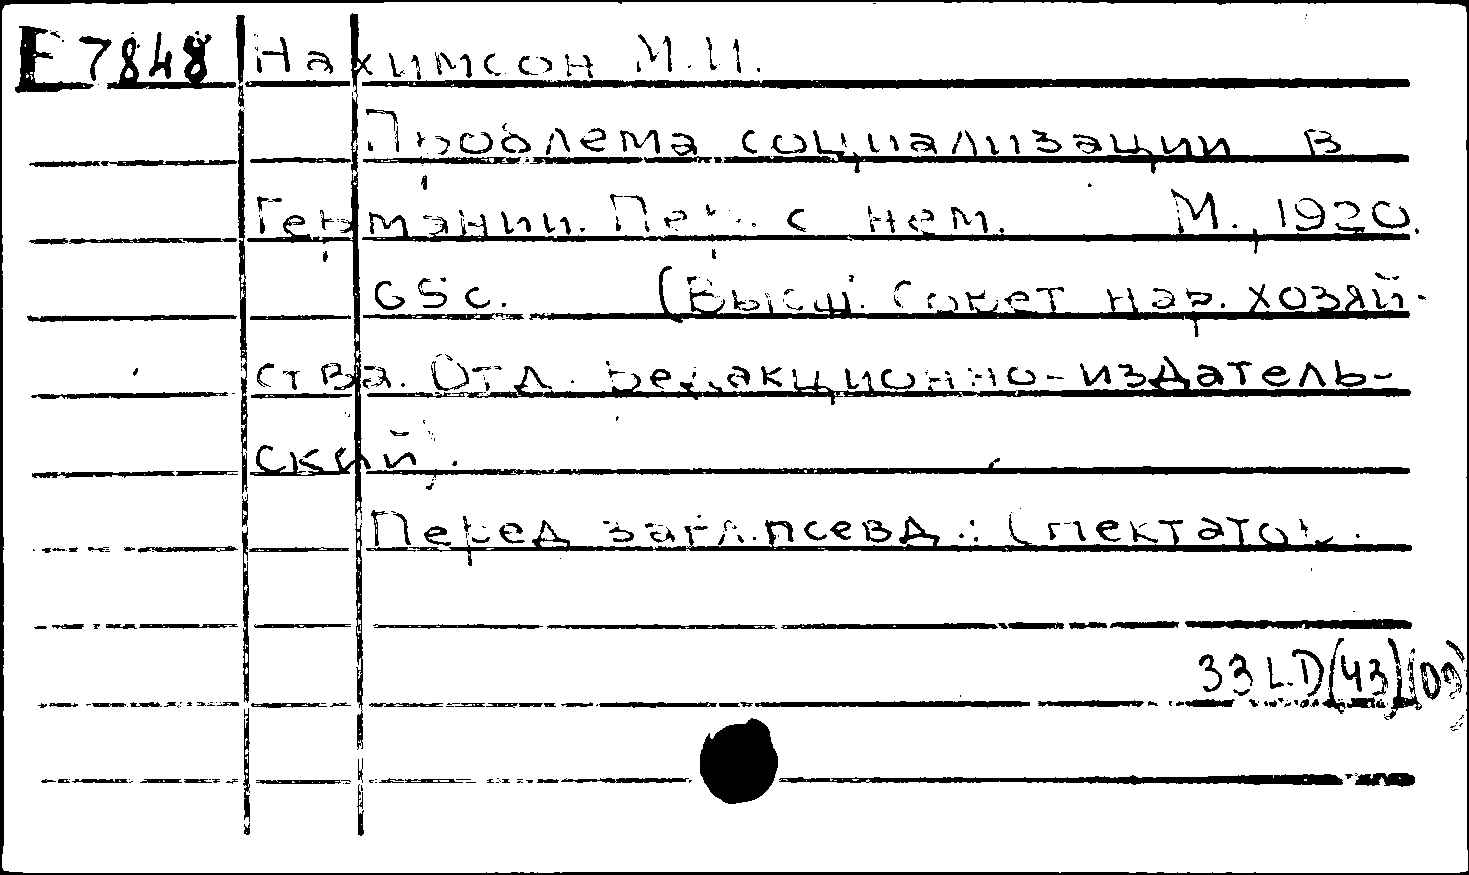 E 7848 Нахимсон М.И.
Проблема социализации в
Германии. Пер. с нем. М., 1920.
65с. (Высш. Совет нар. хозяй-
ства. Отд. редакционно-издатель-
ский).
Перед загл. псевд.: Спектатор.
33 L.D(43)(09)